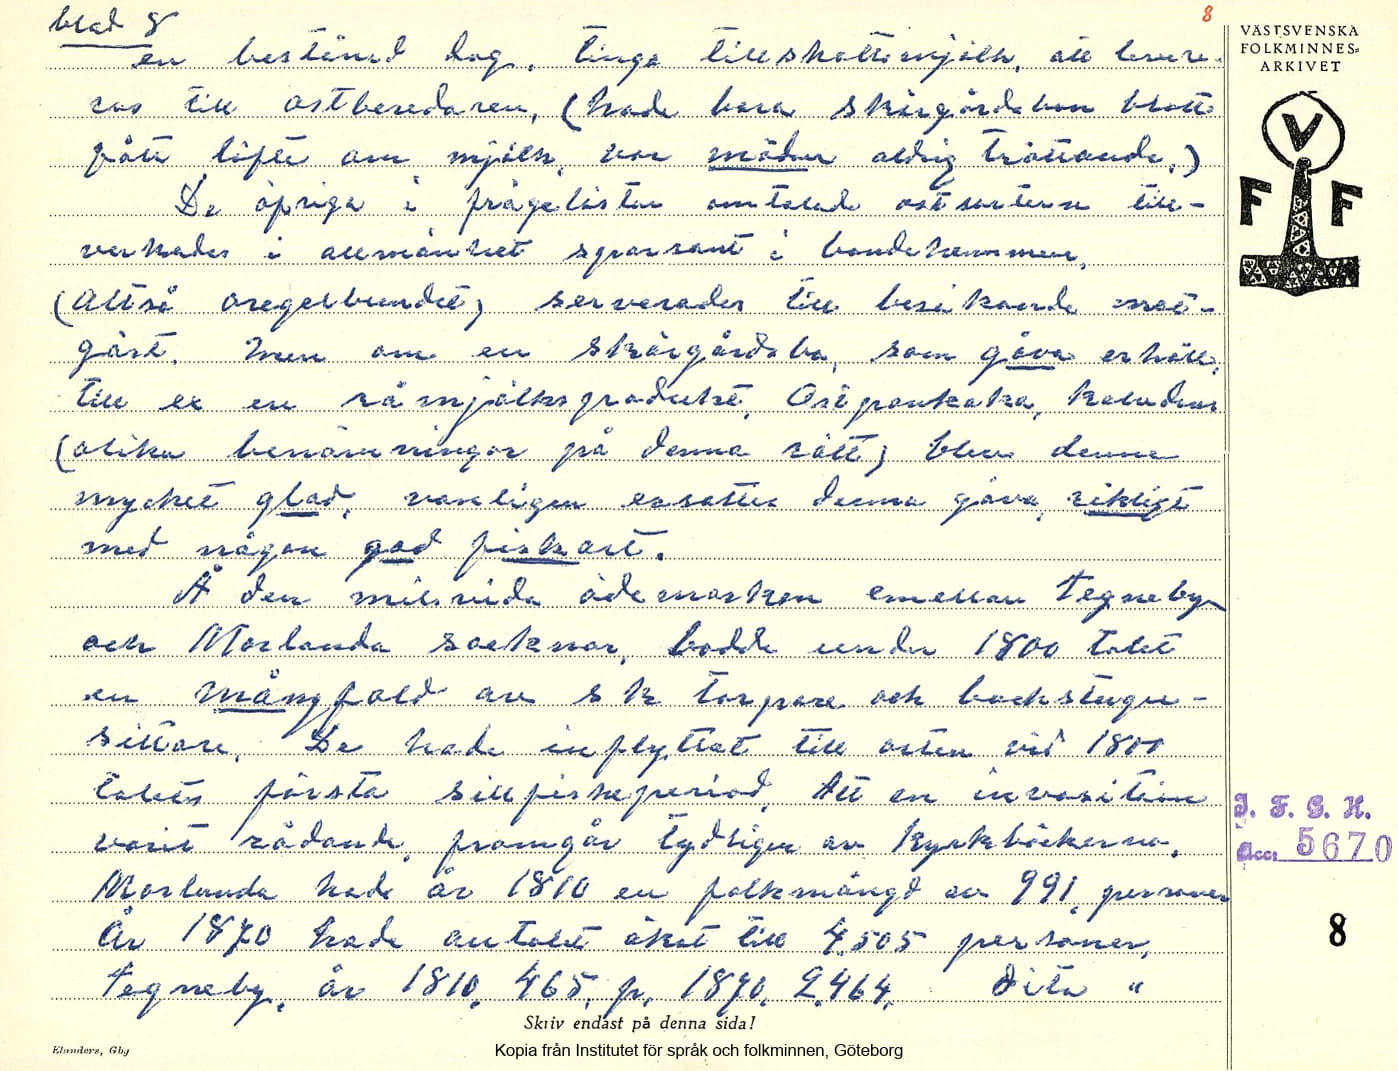 blad 8
8
en bestämd dag, tinga tillskottsmjölk, att levere-
ras till ostberedaren, (hade bara skärgårdsbon blott
fått löfte om mjölk, var mödan aldrig tröttande.)
De öpriga i frågelistan omtalade ostsorterna till-
verkades i allmänhet sparsamt i bondehemmen,
(alltså oregelbundet) serverades till besökande mat-
gäst. Men om en skärgårdsbo, som gåva erhöll,
till ex en råmjölksprodukt, Ostpankaka, Kaludans
(olika benämningar på denna rätt) blev denne
mycket glad, vanligen ersattes denna gåva, rikligt
med någon god fiskart.
Å den milsvida ödemarken emellan Tegneby
och Morlanda socknar, bodde under 1800 talet
en mångfald av s k torpare och backstugu-
sittare. De hade inflyttat till orten vid 1800
talets första sillfiskeperiod. Att en invasition
varit rådande, framgår tydligen av Kyrkböckerna.
Morlanda hade år 1810 en folkmängd av 991, personer
År 1870 hade antalet ökat till 4,505 personer,
Tegneby, år 1810, 465, p, 1870, 2,464, Dito "
Skriv endast på denna sida!
Elanders, Gbg
Kopia från Institutet för språk och folkminnen, Göteborg
VÄSTSVENSKA
FOLKMINNES-
ARKIVET
V
F F
I. F. G. H.
Acc. 5670
8